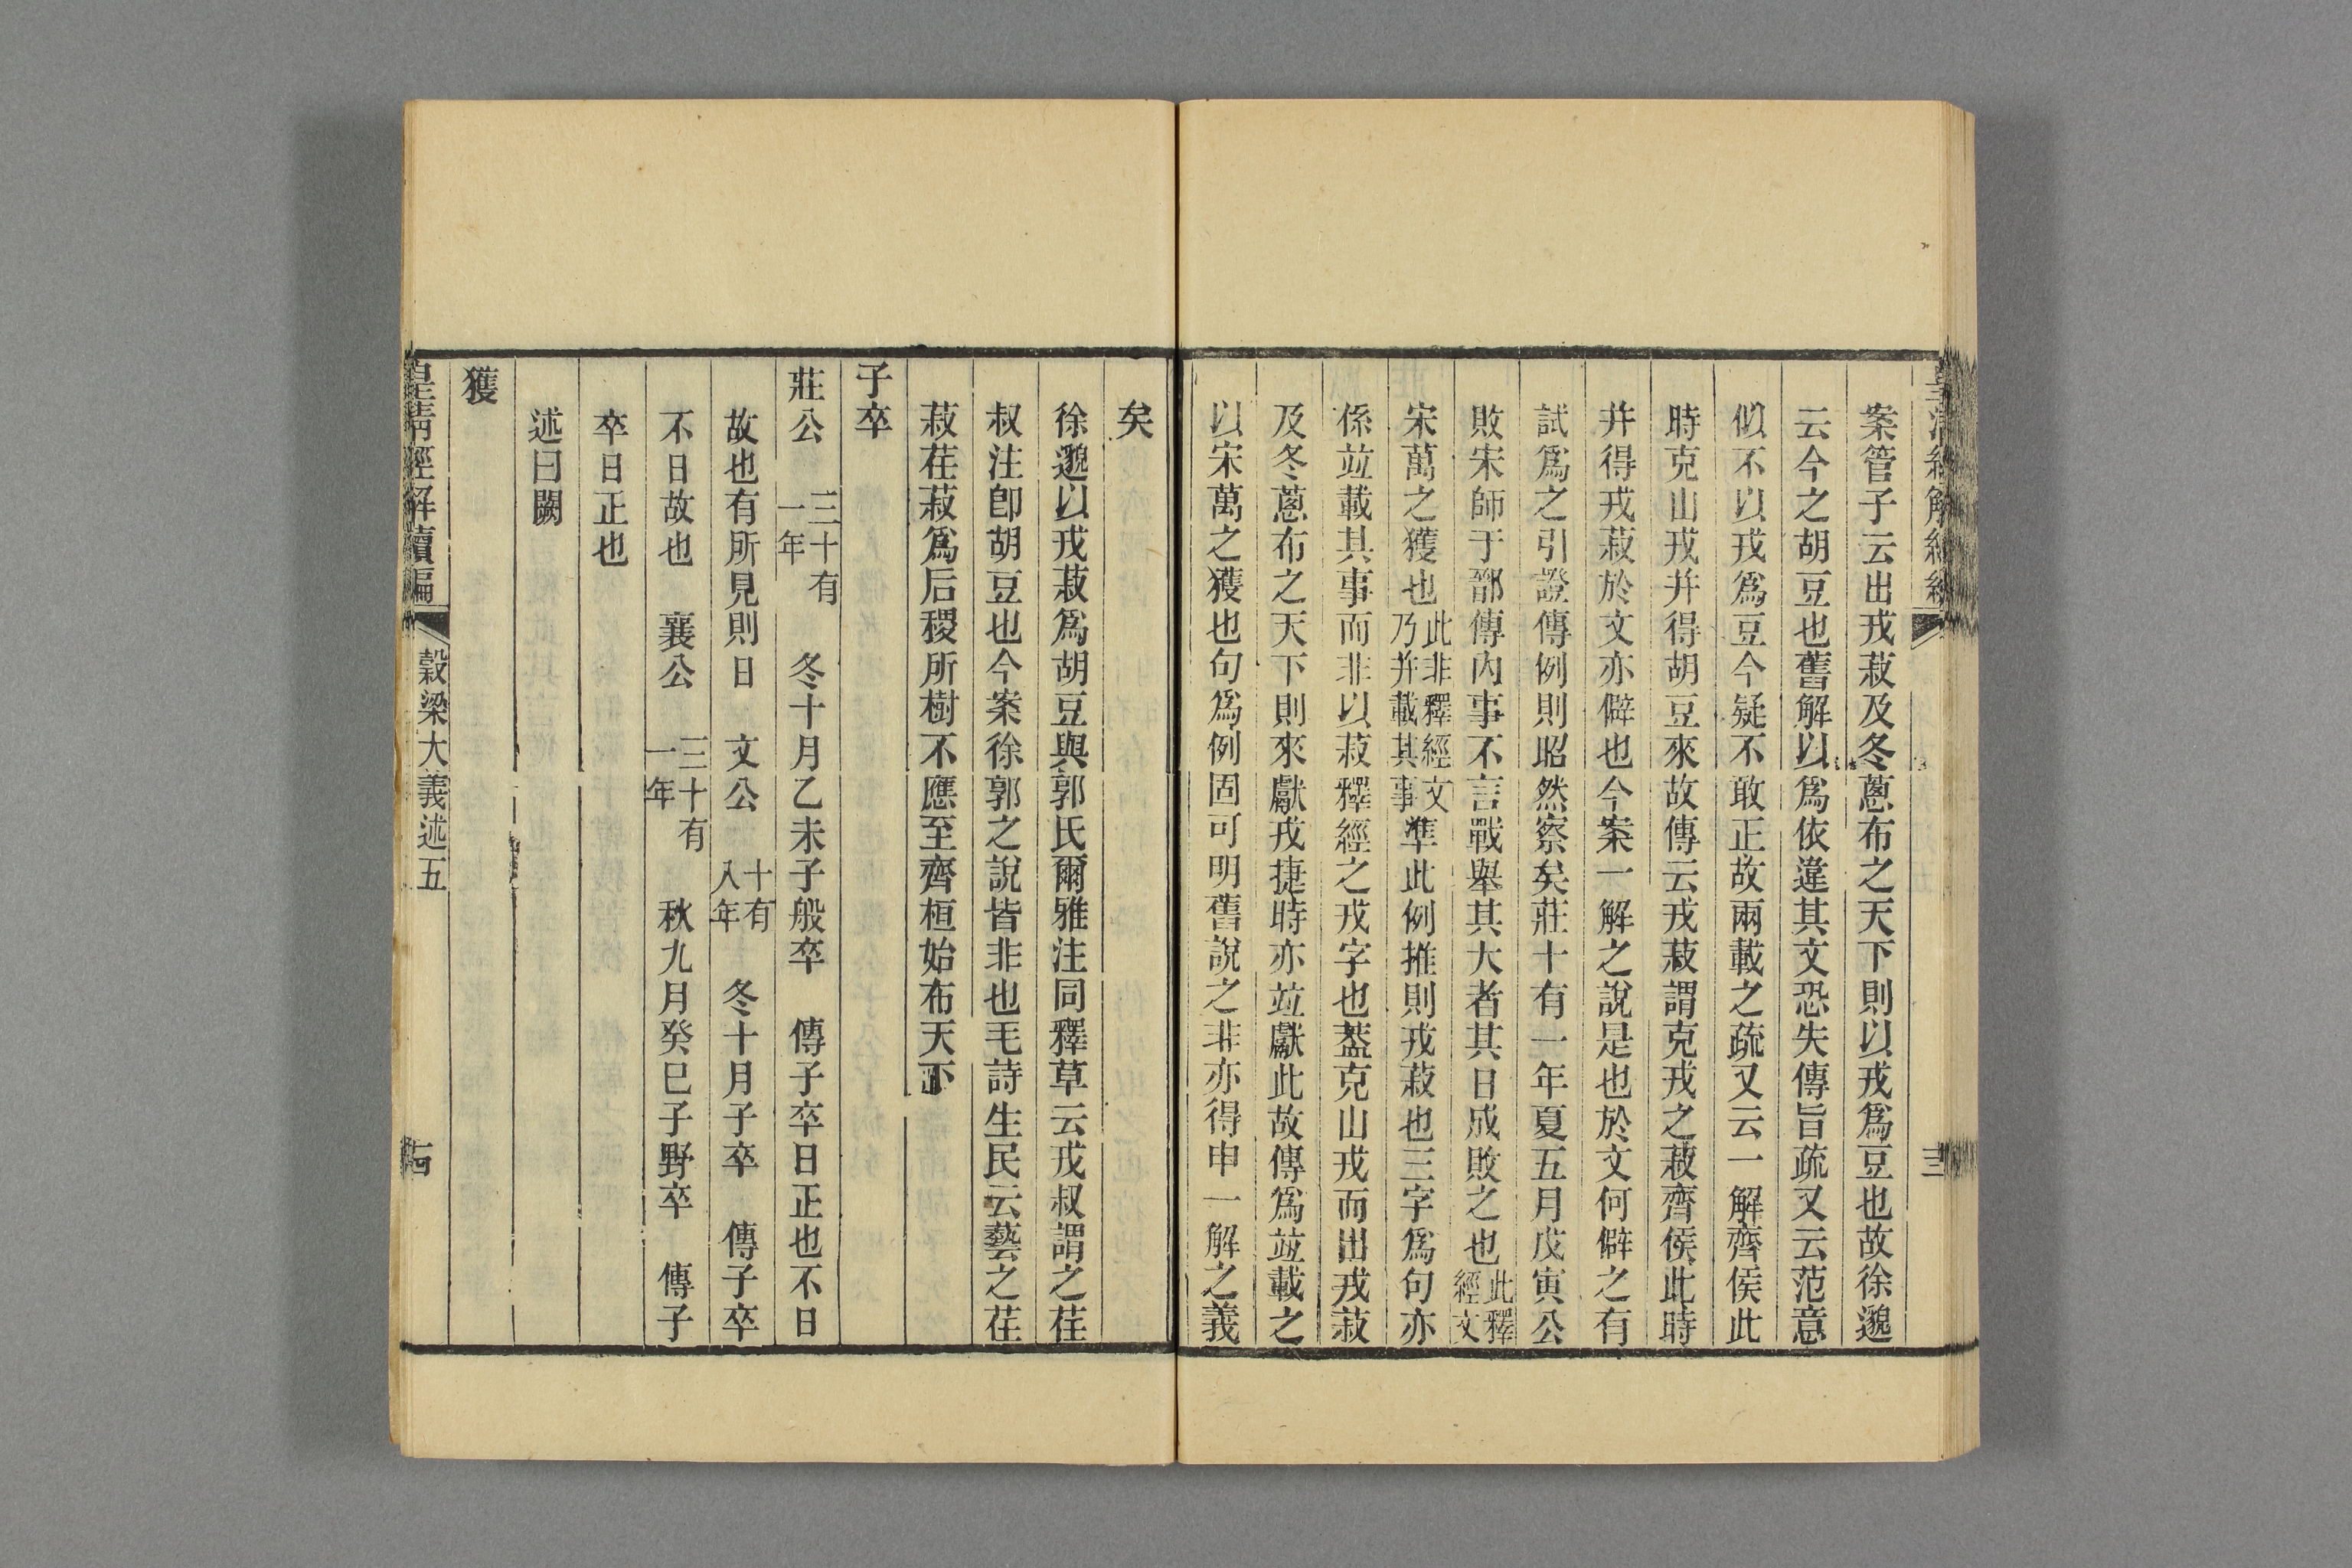 案管子云出戎菽及冬蔥布之天下則以戎爲豆也故徐邈
云今之胡豆也舊解以爲依違其文恐失傳旨疏又云范意
似不以戎爲豆今疑不敢正故兩載之疏又云一解齊侯此
時克山戎并得胡豆來故傳云戎菽謂克戎之菽齊侯此時
并得戎菽於文亦僻也今案一解之說是也於文何僻之有
試爲之引證傳例則昭然察矣莊十有一年夏五月戊寅公
敗宋師于鄑傳內事不言戰舉其大者其日成敗之也此釋經文
宋萬之獲也此非釋經文乃并載其事準此例推則戎菽也三字爲句亦
係竝載其事而非以菽釋經之戎字也葢克山戎而出戎菽
及冬蔥布之天下則來獻戎捷時亦竝獻此故傳爲竝載之
以宋萬之獲也句爲例固可明舊說之非亦得申一解之義
矣
徐邈以戎菽爲胡豆與郭氏爾雅注同釋草云戎叔謂之荏
叔注卽胡豆也今案徐郭之說皆非也毛詩生民云藝之荏
菽荏菽爲后稷所樹不應至齊桓始布天下
子卒
莊公 三十有一年 冬十月乙未子般卒 傳子卒日正也不日
故也有所見則日 文公 十有八年 冬十月子卒 傳子卒
不日故也 襄公 三十有一年 秋九月癸巳子野卒 傳子
卒日正也
述曰闕
獲
皇清經解續編 穀梁大義述五 十四